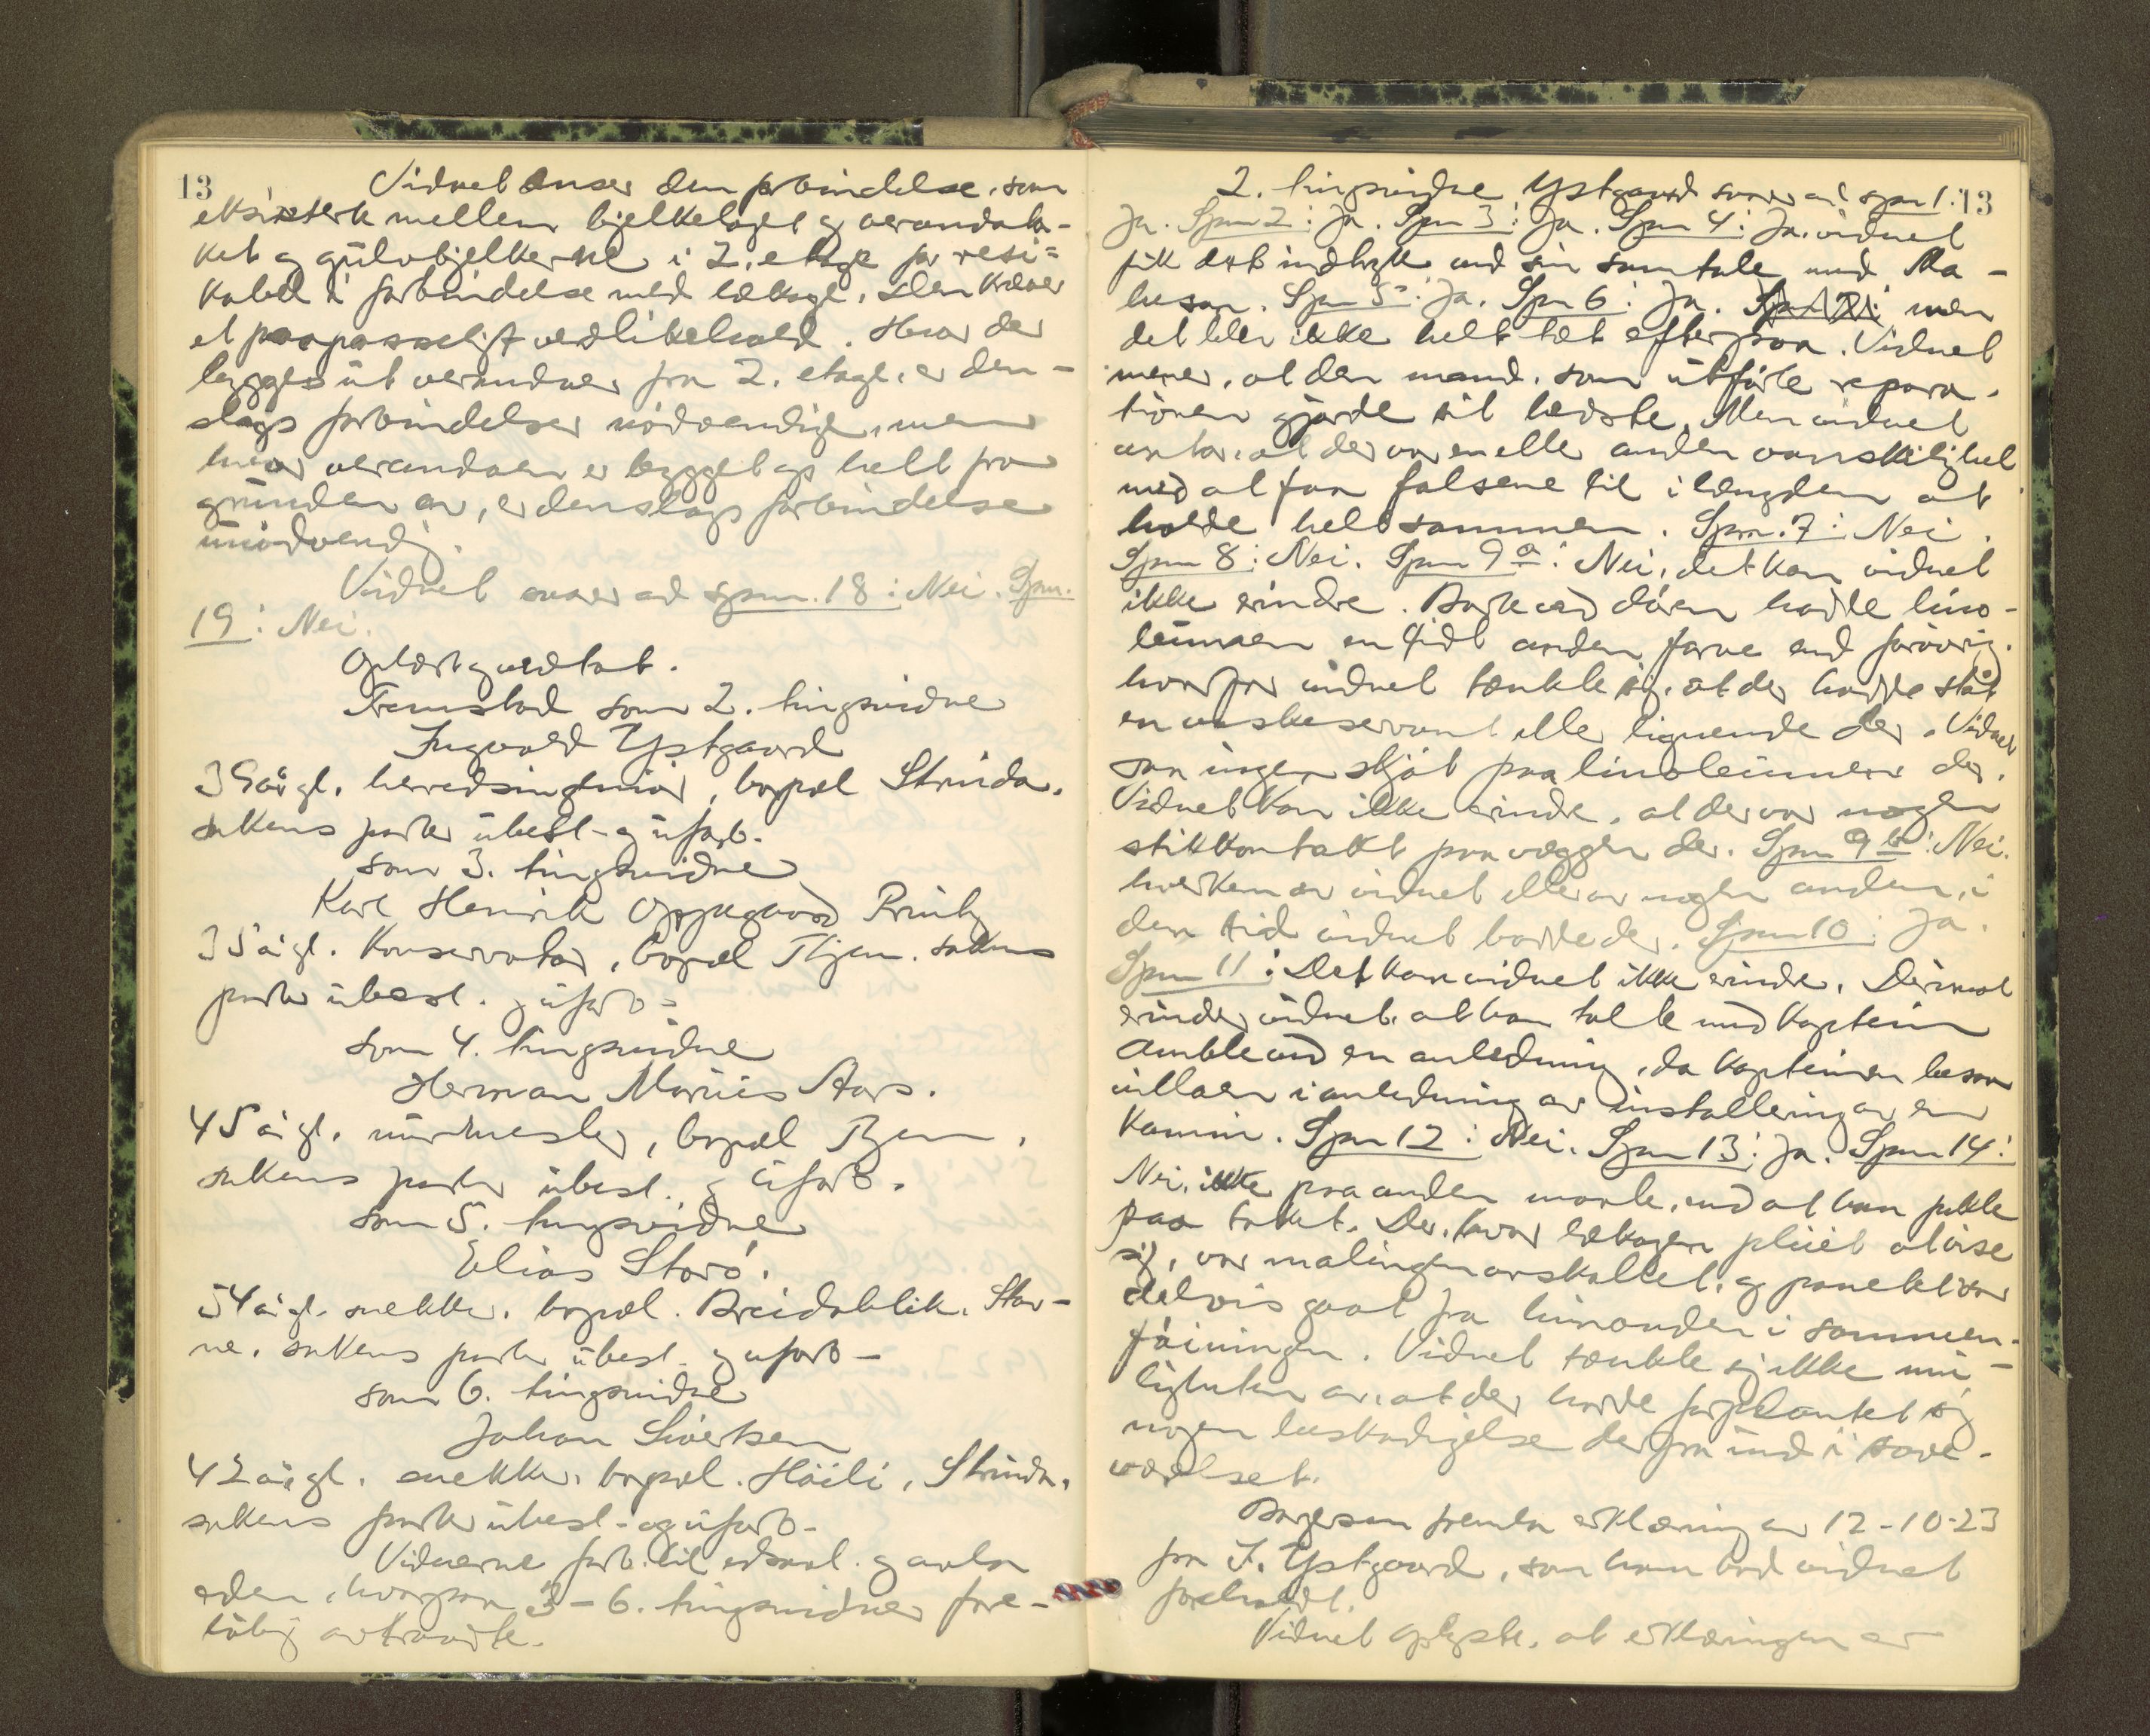 13
Vidnet anser den forbindelse, som
eksisterte mellem bjelkelaget g verandata-
ket g gulvbjelkerne i 2. etage for resi-
kabel i forbindelse med lækage. Den kræver
et paapasseligt vedlikehold. Hvor der
bygges ut verandaer fra 2. etage, er den-
slags forbindelser nödvendige, men
hvor verandaen er bygget op helt fra
grunden av, er denslags forbindelse
unödvendig.
Vidnet svarer ad spm. 18: Nei. Spm.
19: Nei.
Oplæst g vedtat.
Fremstod som 2. tingsvidne
Ingvald Ystgaard
39 år gl. herredsingeniör, bopæl Strinda.
sakens parter übesl- g üforb-
som 3. tingsvidne
Karl Henrik Oppegaard Printz
35 år gl. konservator, bopæl Thjem. sakens
parter übesl. g üforb-
som 4. tingsvidne
Herman Marius Aars.
45 år gl. mürmester, bopæl Tjem,
sakens parter übesl. g üforb.
som 5. tingsvidne
Elias Storö.
54 år gl. snekker, bopæl Breidablik, Stav-
ne, sakens parter übesl- g uforb-
som 6. tingsvidne
Johan Sivertsen
42 år gl. snekker, bopæl Höili, Strinda,
sakens parter übesl- og üforb-
Vidnerne forb. til edsavl. g avla
eden, hvorpaa 3-6. tingsvidner fore-
löbig avtraadte.
2. tingsvidne Ystgaard svarer ad spm 1: 13
Ja. Spm 2: Ja. Spm 3: Ja. Spm 4: Ja. vidnet
fik det indtryk ved sin samtale med
Spm 5: Ja. Spm 6: Ja. men
det blev ikke helt tæt efterpaa. Vidnet
mener, at den mand, som utförte repara-
tionen gjorde sit bedste. Men vidnet
antar, at der var en eller anden vanskelighet
med at faa falsene til i længden at
holde helt sammen. Spm. 7: Nei.
Spm 8: Nei. Spm 9 a: Nei, det kan vidnet
ikke erindre. Borte ved dören hadde lino-
leumen en lidt anden farve end forövrig.
hvorfor vidnet tænkte sig, at der hadde stået
en vaskeservant eller lignende der. Vidnet
saa ingen skjöt paa linoleumen der.
Vidnet kan ikke erindre, at der var nogen
stikkontakt paa væggen der. Spm 9 b: Nei.
hverken av vidnet eller av nogen anden, i
den tid vidnet bodde der. Spm 10: Ja.
Spm 11: Det kan vidnet ikke erindre. Derimot
erindrer vidnet, at han talte med kaptein
Amble ved en anledning, da kapteinen besaa
villaen i anledning av installering av en
kamin. Spm 12: Nei. Spm 13: Ja. Spm 14:
Nei, ikke paa anden maate, end at han pekte
paa taket. Der, hvor lækagen pleiet at vise
sig, var malingen avskallet, og panelet var
delvis gaat fra hinanden i sammen-
föiningen. Vidnet tænkte sig ikke mu-
ligheten av, at der hadde forplantet sig
nogen beskadigelse derfra ind i sove-
værelset.
fremla erklæring av 12-10-23
fra I. Ystgaard, som han bad vidnet
foreholdt.
Vidnet oplyste, at erklæringen er